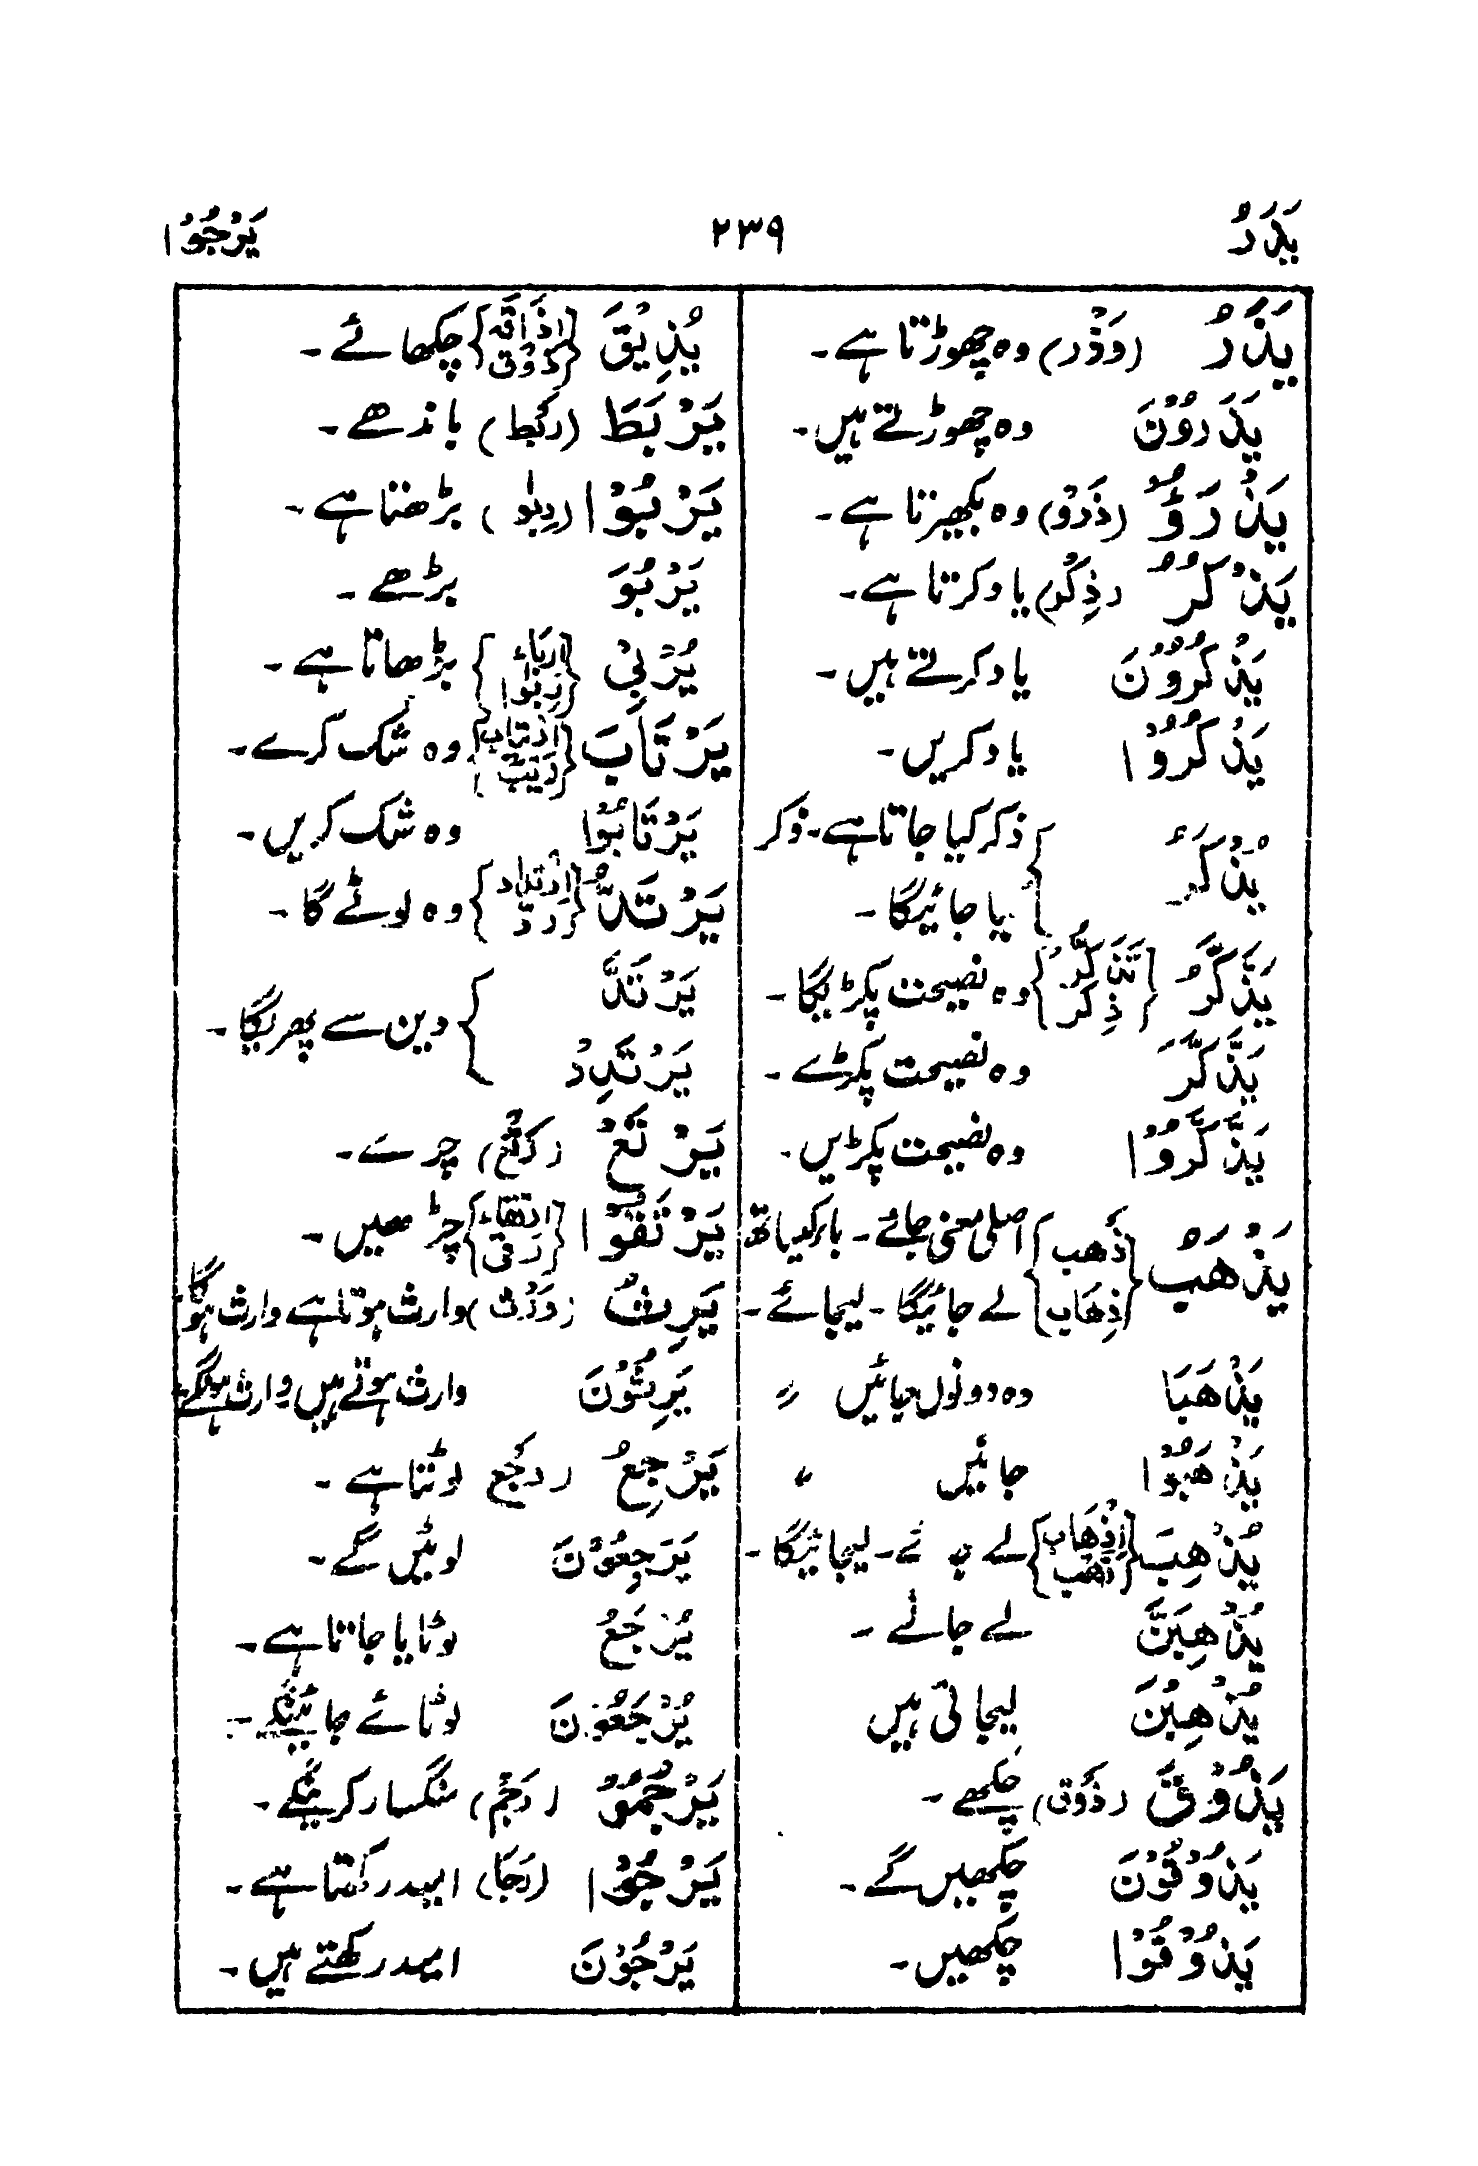 يَذَرُ ۲۳۹ يَرْجُوْا
يَذَرُ (وَذْر) وہ چھوڑتا ہے۔
يَذَرُوْنَ وہ چھوڑتے ہیں۔
يَذْرَؤُ (ذَرْو) وہ بکھیرتا ہے۔
يَذْكُرُ (ذِكْر) یاد کرتا ہے۔
يَذْكُرُوْنَ یاد کرتے ہیں۔
يَذْكُرُوْا یاد کریں۔
يُذْكَرُ ذکر کیا جاتا ہے۔ ذکر
کیا جائیگا۔
يَذَّكَّرُ {تَذَكُّر ذِكْر} وہ نصیحت پکڑیگا۔
يَذَّكَّرَ وہ نصیحت پکڑے۔
يَذَّكَّرُوْا وہ نصیحت پکڑیں۔
يَذْهَبُ {ذَهَب ذِهَاب} اصلی معنی جائے۔ با، کیساتھ
لے جائیگا۔ لیجائے۔
يَذْهَبَا وہ دونوں جائیں 〃
يَذْهَبُوْا جائیں 〃
يُذْهِبَ {اِذْهَاب ذَهَب} لے جائے۔ لیجائیگا۔
يُذْهِبَنَّ لے جائے۔
يُذْهِبْنَ لیجاتی ہیں
يَذُوْقَ (ذَوْق) چکھے۔
يَذُوْقُوْنَ چکھیں گے۔
يَذُوْقُوْا چکھیں۔
يُذِيْقَ {اِذَاقَه ذَوْق} چکھائے۔
يَرْبِطَ (رَبْط) باندھے۔
يَرْبُوْا (رِبٰوا) بڑھتا ہے۔
يَرْبُوَ بڑھے۔
يُرْبِيْ {اِرْبَاء رِبٰوا} بڑھاتا ہے۔
يَرْتَابَ {اِرْتِيَاب رَيْب} وہ شک کرے۔
يَرْتَابُوْا وہ شک کریں۔
يَرْتَدُّ {اِرْتِدَاد رَدّ} وہ لوٹے گا۔
يَرْتَدَّ
يَرْتَدِدْ دین سے پھریگا۔
يَرْتَعْ (رَتْع) چرے۔
يَرْتَقُوْا {اِرْتِقَاء رَقْى} چڑھیں۔
يَرِثُ (وَرْث) وارث ہوتا ہے وارث ہوگا
يَرِثُوْنَ وارث ہوتے ہیں وارث ہونگے
يَرْجِعُ (رَجْع) لوٹتا ہے۔
يَرْجِعُوْنَ لوٹیں گے۔
يُرْجَعُ لوٹایا جاتا ہے۔
يُرْجَعُوْنَ لوٹائے جائینگے۔
يَرْجُمُوْ (رَجْم) سنگسار کرینگے۔
يَرْجُوْا (رَجَا) امید رکھتا ہے۔
يَرْجُوْنَ امید رکھتے ہیں۔